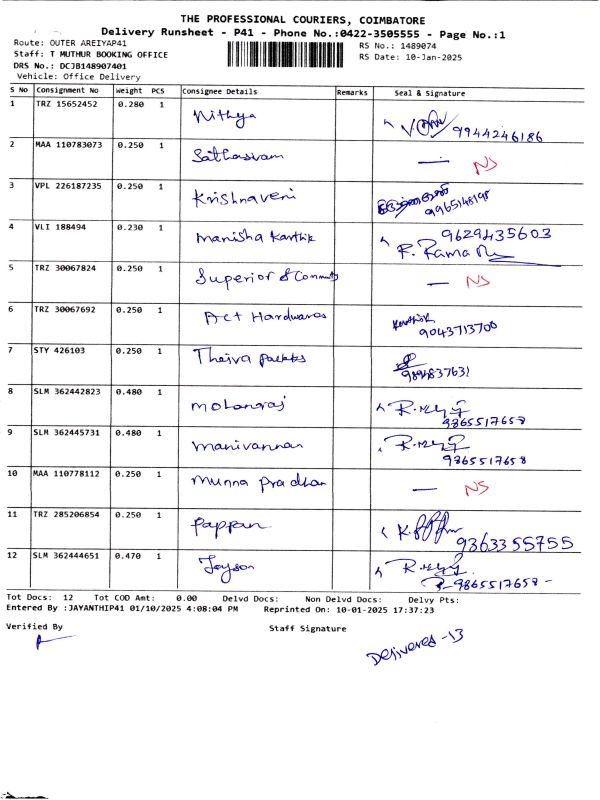 THE PROFESSIONAL COURIERS, COIMBATORE
Delivery Runsheet - P41 - Phone No.:0422-3505555 - Page No.:1
Route: OUTER AREIYAP41
RS No.: 1489074
Staff: T MUTHUR BOOKING OFFICE
RS Date: 10-Jan-2025
DRS No.: DCJB148907401
Vehicle: Office Delivery
S No Consignment No Weight PCS Consignee Details Remarks Seal & Signature
1 TRZ 15652452 0.280 1 Nithya 9944246186
2 MAA 110783073 0.250 1 Sathasivam — NS
3 VPL 226187235 0.250 1 Krishnaveni 9965148198
4 VLI 188494 0.230 1 Manisha Karthik 9629435603
R. Rama
5 TRZ 30067824 0.250 1 Superior & — NS
6 TRZ 30067692 0.250 1 Act Hardwares Karthik
9043713700
7 STY 426103 0.250 1 Theiva
8 SLM 362442823 0.480 1 Mohanraj
9865517658
9 SLM 362445731 0.480 1 Manivannan
9865517658
10 MAA 110778112 0.250 1 Munna Pradhan — NS
11 TRZ 285206854 0.250 1 Pappan 9363355755
12 SLM 362444651 0.470 1 Jayson
9865517658 -
Tot Docs: 12 Tot COD Amt: 0.00 Delvd Docs: Non Delvd Docs: Delvy Pts:
Entered By :JAYANTHIP41 01/10/2025 4:08:04 PM Reprinted On: 10-01-2025 17:37:23
Verified By Staff Signature
Delivered -13